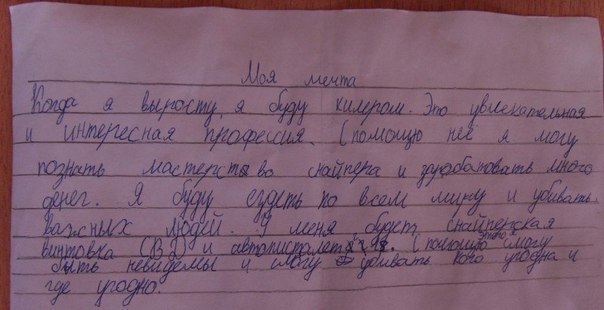 Моя мечта
Когда я вырасту, я буду килером. Это увлекательная
и интересная профессия. С помощю неё я могу
познать мастерство снайпера и зарабатовать много
денег. Я буду ездеть по всем миру и убивать
важных людей. У меня будет снайперская
винтовка (ВЗ) и автописполет. С помощию этого я смогу
быть невидемы и смогу убивать кого угодна и
где угодно.